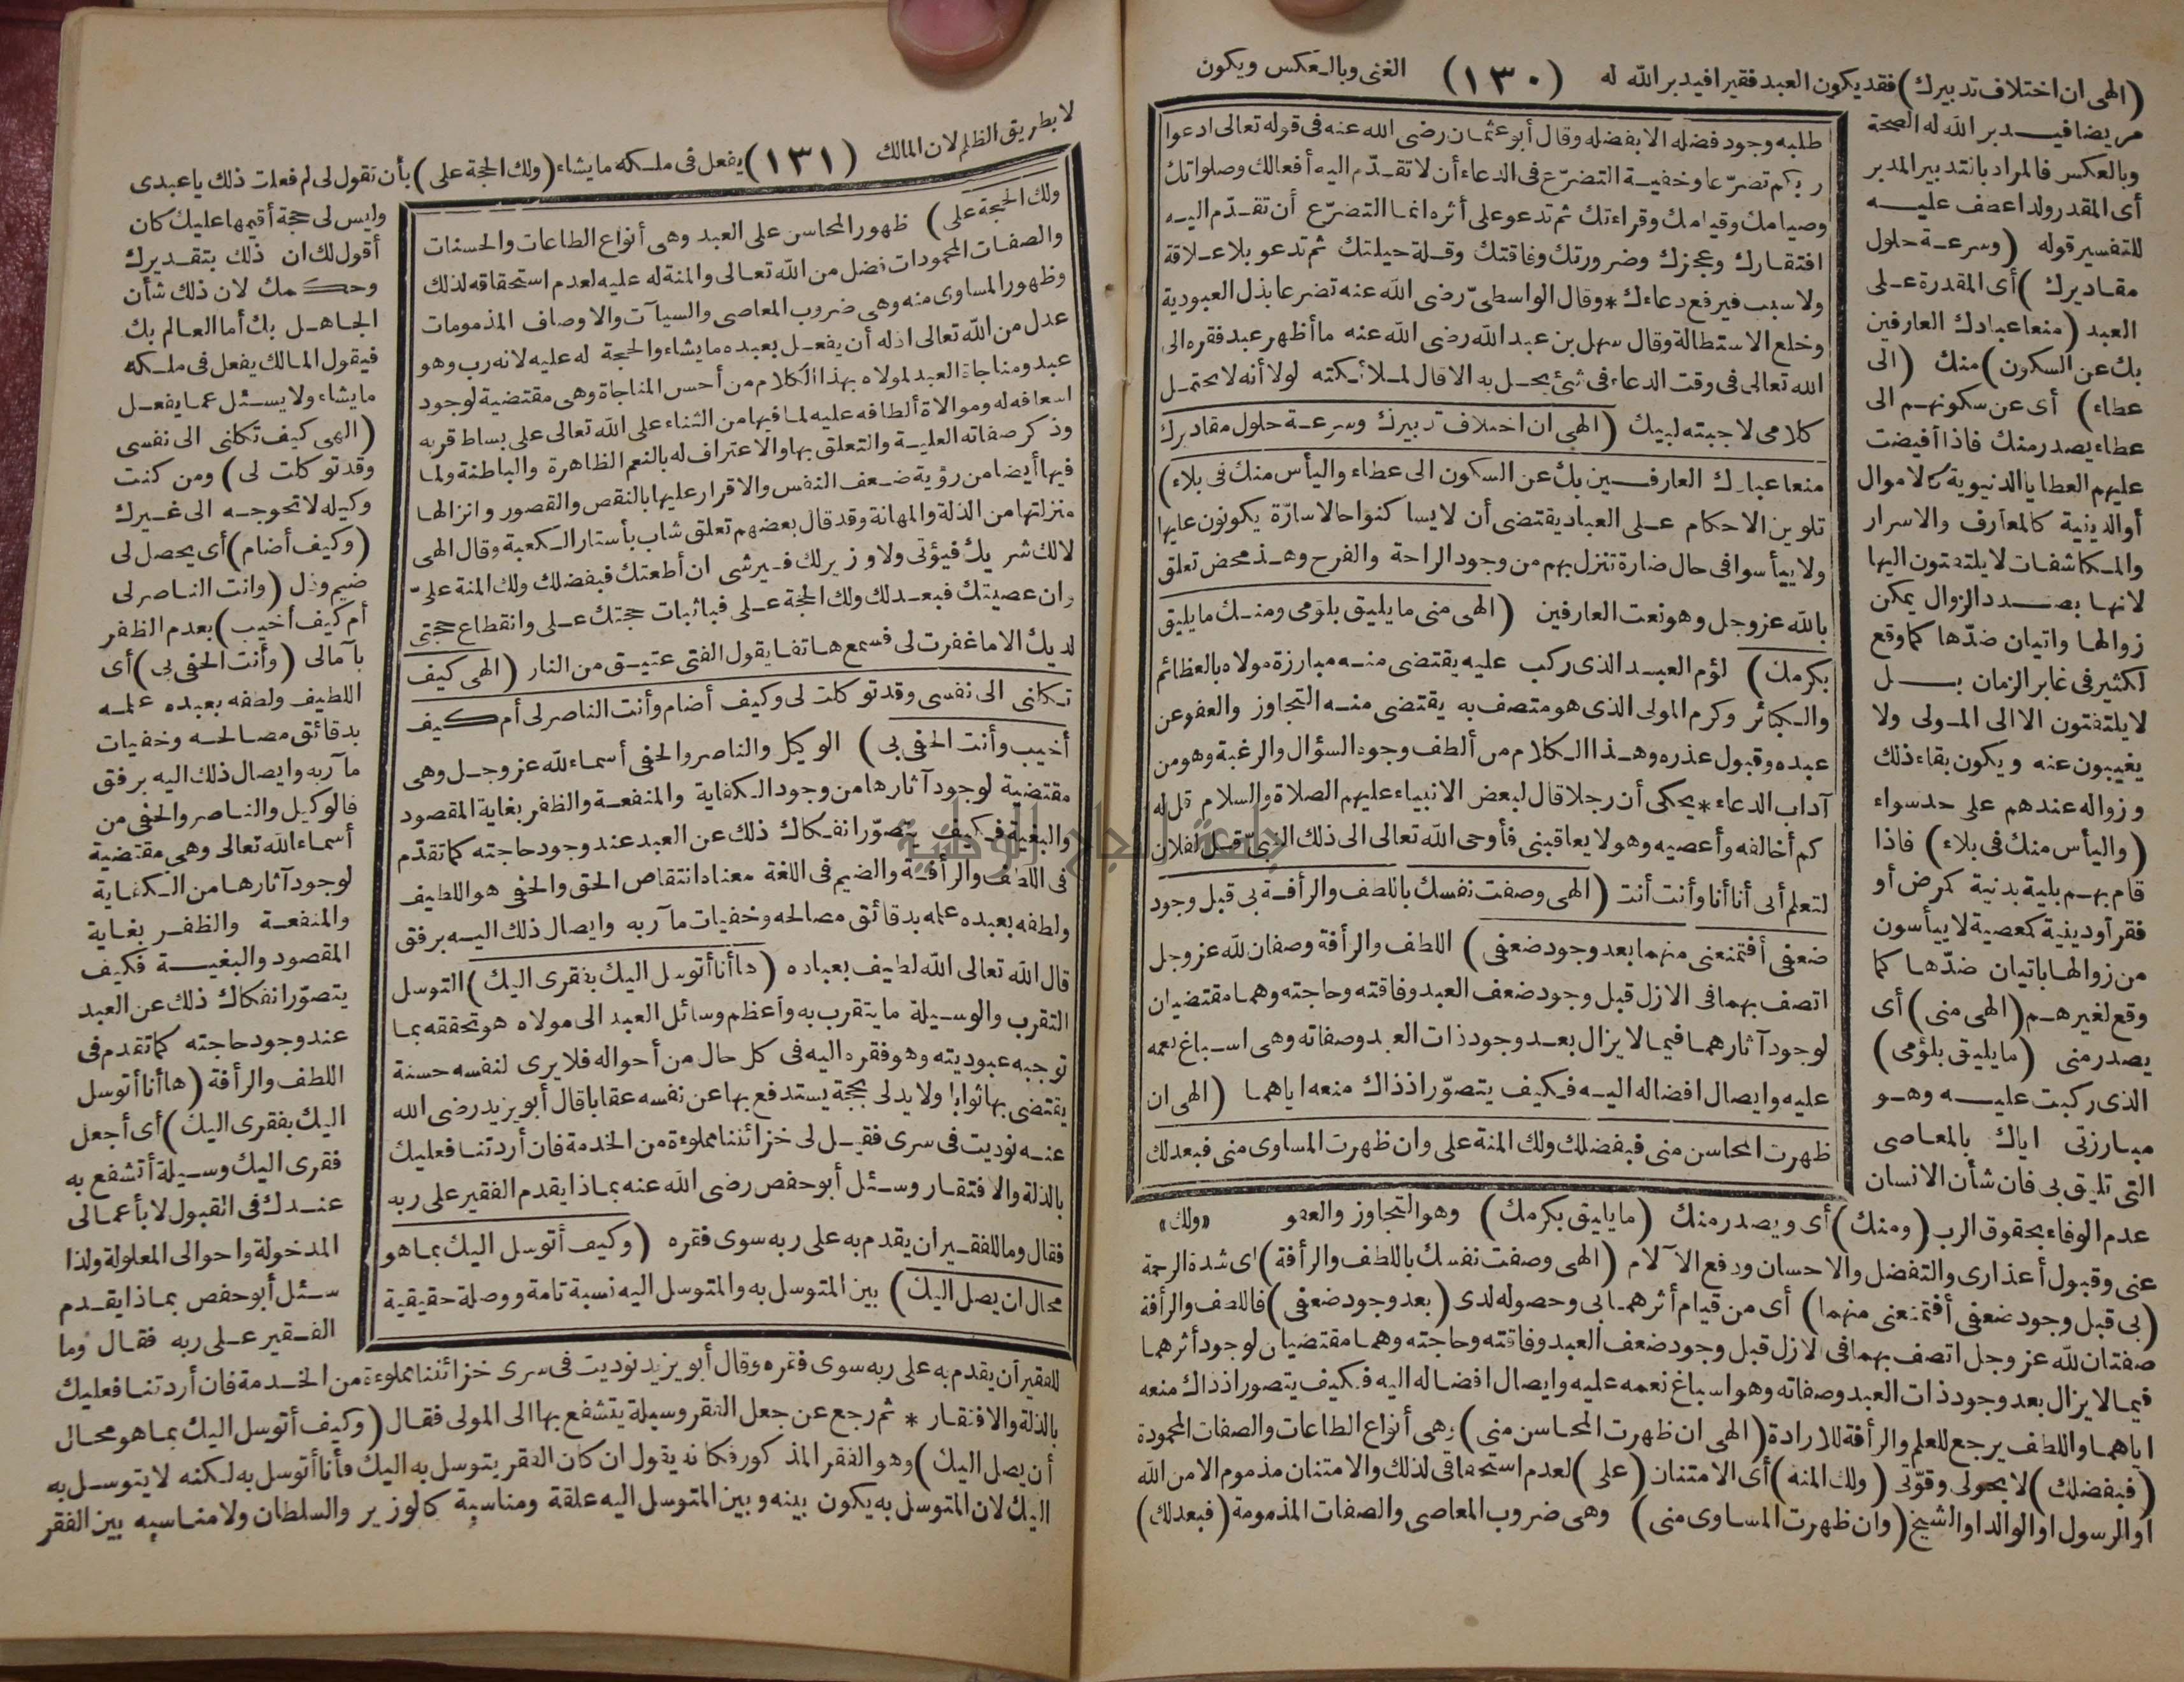 (الهى ان اختلاف تدبيرك) فقد يكون العبد فقيرا فيدبر الله له (١٣٠) الغنى وبالعكس ويكون
مريضا فيدبر الله له الصحة
وبالعكس فالمراد بالتدبير المدبر
أى المقدر ولذا عطف عليه
للتفسير قوله (وسرعة حلول
مقاديرك) أى المقدرة على
العبد (منعا عبادك العارفين
بك عن السكون) منك (الى
عطاء) أى عن سكونهم الى
عطاء يصدر منك فاذا أفيضت
عليهم العطايا الدنيوية كالاموال
أو الدينية كالمعارف والاسرار
والمكاشفات لا يلتفتون اليها
لانها بصدد الزوال يمكن
زوالها واتيان ضدّها كما وقع
لكثير فى غابر الزمان بل
لا يلتفتون الا الى المولى ولا
يغيبون عنه ويكون بقاء ذلك
وزواله عندهم على حد سواء
(واليأس منك فى بلاء) فاذا
قام بهم بلية بدنية كمرض أو
فقر أو دينية كمعصية لا ييأسون
من زوالها باتيان ضدّها كما
وقع لغيرهم (الهى منى) أى
يصدر منى (ما يليق بلؤمى)
الذى ركبت عليه وهو
مبارزتى اياك بالمعاصى
التى تليق بى فان شأن الانسان
طلبه وجود فضله الا بفضله وقال أبو عثمان رضى الله عنه فى قوله تعالى ادعوا
ربكم تضرّعا وخفية التضرّع فى الدعاء أن لا تقدّم اليه أفعالك وصلواتك
وصيامك وقيامك وقراءتك ثم تدعو على أثره انما التضرّع أن تقدّم اليه
افتقارك وعجزك وضرورتك وفاقتك وقلة حيلتك ثم تدعو بلا علاقة
ولا سبب فيرفع دعاءك * وقال الواسطىّ رضى الله عنه تضرعا بذل العبودية
وخلع الاستطالة وقال سهل بن عبد الله رضى الله عنه ما أظهر عبد فقره الى
الله تعالى فى وقت الدعاء فى شئ يحل به الا قال لملائكته لولا أنه لا يحتمل
كلامى لاجبته لبيك (الهى ان اختلاف تدبيرك وسرعة حلول مقاديرك
منعا عبادك العارفين بك عن السكون الى عطاء واليأس منك فى بلاء)
تلوين الاحكام على العباد يقتضى أن لا يساكنوا حالا سارّة يكونون عليها
ولا ييأسوا فى حال ضارة تنزل بهم من وجود الراحة والفرح وهذ محض تعلق
بالله عز وجل وهو نعت العارفين (الهى منى ما يليق بلؤمى ومنك ما يليق
بكرمك) لؤم العبد الذى ركب عليه يقتضى منه مبارزة مولاه بالعظائم
والكبائر وكرم المولى الذى هو متصف به يقتضى منه التجاوز والعفو عن
عبده وقبول عذره وهذا الكلام من ألطف وجوه السؤال والرغبة وهو من
آداب الدعاء * يحكى أن رجلا قال لبعض الانبياء عليهم الصلاة والسلام قل له
كم أخالفه وأعصيه وهو لا يعاقبنى فأوحى الله تعالى الى ذلك النبىّ قل لفلان
لتعلم أنى أنا أنا وأنت أنت (الهى وصفت نفسك باللطف والرأفة بى قبل وجود
ضعفى أفتمنعنى منهما بعد وجود ضعفى) اللطف والرأفة وصفان لله عز وجل
اتصف بهما فى الازل قبل وجود ضعف العبد وفاقته وحاجته وهما مقتضيان
لوجود آثارهما فيما لا يزال بعد وجود ذات العبد وصفاته وهى اسباغ نعمه
عليه وايصال افضاله اليه فكيف يتصوّر اذ ذاك منعه اياهما (الهى ان
ظهرت المحاسن منى فبفضلك ولك المنة على وان ظهرت المساوى منى فبعدلك
عدم الوفاء بحقوق الرب (ومنك) أى ويصدر منك (ما يليق بكرمك) وهو التجاوز والعفو «ولك»
عنى وقبول أعذارى والتفضل والاحسان ودفع الآلام (الهى وصفت نفسك باللطف والرأفة) أى شدة الرحمة
(بى قبل وجود ضعفى أفتمنعنى منهما) أى من قيام أثرهما بى وحصوله لدى (بعد وجود ضعفى) فاللطف والرأفة
صفتان لله عز وجل اتصف بهما فى الازل قبل وجود ضعف العبد وفاقته وحاجته وهما مقتضيان لوجود أثرهما
فيما لا يزال بعد وجود ذات العبد وصفاته وهو اسباغ نعمه عليه وايصال افضاله اليه فكيف يتصور اذ ذاك منعه
اياهما واللطف يرجع للعلم والرأفة للارادة (الهى ان ظهرت المحاسن منى) وهى أنواع الطاعات والصفات المحمودة
(فبفضلك) لا بحولى وقوّتى (ولك المنة) أى الامتنان (على) لعدم استحقاقى لذلك والامتنان مذموم الا من الله
أو الرسول او الوالد او الشيخ (وان ظهرت المساوى منى) وهى ضروب المعاصى والصفات المذمومة (فبعدلك)
لا بطريق الظلم لان المالك (١٣١) يفعل فى ملكه ما يشاء (ولك الحجة على) بأن تقول لى لم فعلت ذلك يا عبدى
ولك الحجة على) ظهور المحاسن على العبد وهى أنواع الطاعات والحسنات
والصفات المحمودات فضل من الله تعالى والمنة له عليه لعدم استحقاقه لذلك
وظهور المساوى منه وهى ضروب المعاصى والسيآت والاوصاف المذمومات
عدل من الله تعالى اذ له أن يفعل بعبده ما يشاء والحجة له عليه لانه رب وهو
عبد ومناجاة العبد لمولاه بهذا الكلام من أحسن المناجاة وهى مقتضية لوجود
اسعافه له وموالاة ألطافه عليه لما فيها من الثناء على الله تعالى على بساط قربه
وذكر صفاته العلية والتعلق بها والاعتراف له بالنعم الظاهرة والباطنة ولما
فيها أيضا من رؤية ضعف النفس والاقرار عليها بالنقص والقصور وانزالها
منزلتها من الذلة والمهانة وقد قال بعضهم تعلق شاب بأستار الكعبة وقال الهى
لا لك شريك فيؤتى ولا وزير لك فيرشى ان أطعتك فبفضلك ولك المنة علىّ
وان عصيتك فبعدلك ولك الحجة على فباثبات حجتك على وانقطاع حجتى
لديك الا ما غفرت لى فسمع هاتفا يقول الفتى عتيق من النار (الهى كيف
تكلنى الى نفسى وقد توكلت لى وكيف أضام وأنت الناصر لى أم كيف
أخيب وأنت الحفى بى) الوكيل والناصر والحفى أسماء لله عز وجل وهى
مقتضية لوجود آثارها من وجود الكفاية والمنفعة والظفر بغاية المقصود
والبغية فكيف يتصوّر انفكاك ذلك عن العبد عند وجود حاجته كما تقدّم
فى اللطف والرأفة والضيم فى اللغة معناه انتقاص الحق والحفى هو اللطيف
ولطفه بعبده علمه بدقائق مصالحه وخفيات مآربه وايصال ذلك اليه برفق
قال الله تعالى الله لطيف بعباده (ها أنا أتوسل اليك بفقرى اليك) التوسل
التقرب والوسيلة ما يتقرب به وأعظم وسائل العبد الى مولاه هو تحققه بما
توجبه عبوديته وهو فقره اليه فى كل حال من أحواله فلا يرى لنفسه حسنة
يقتضى بها ثوابا ولا يدلى بحجة يستدفع بها عن نفسه عقابا قال أبو يزيد رضى الله
عنه نوديت فى سرى فقيل لى خزائننا مملوءة من الخدمة فان أردتنا فعليك
بالذلة والافتقار وسئل أبو حفص رضى الله عنه بماذا يقدم الفقير على ربه
فقال وما للفقير أن يقدم به على ربه سوى فقره (وكيف أتوسل اليك بما هو
محال ان يصل اليك) بين المتوسل به والمتوسل اليه نسبة تامة ووصلة حقيقية
وليس لى حجة أقيمها عليك كان
أقول لك ان ذلك بتقديرك
وحكمك لان ذلك شأن
الجاهل بك أما العالم بك
فيقول المالك يفعل فى ملكه
ما يشاء ولا يسئل عما يفعل
(الهى كيف تكلنى الى نفسى
وقد توكلت لى) ومن كنت
وكيله لا تحوجه الى غيرك
(وكيف أضام) أى يحصل لى
ضيم وذل (وانت الناصر لى
أم كيف أخيب) بعدم الظفر
بآمالى (وأنت الحفى بى) أى
اللطيف ولطفه بعبده علمه
بدقائق مصالحه وخفيات
مآربه وايصال ذلك اليه برفق
فالوكيل والناصر والحفى من
أسماء الله تعالى وهى مقتضية
لوجود آثارها من الكفاية
والمنفعة والظفر بغاية
المقصود والبغية فكيف
يتصوّر انفكاك ذلك عن العبد
عند وجود حاجته كما تقدم فى
اللطف والرأفة (ها أنا أتوسل
اليك بفقرى اليك) أى أجعل
فقرى اليك وسيلة أتشفع به
عندك فى القبول لا بأعمالى
المدخولة واحوالى المعلولة ولذا
سئل أبو حفص بماذا يقدم
الفقير على ربه فقال وما
للفقير أن يقدم به على ربه سوى فقره وقال أبو يزيد نوديت فى سرى خزائننا مملوءة من الخدمة فان أردتنا فعليك
بالذلة والافتقار * ثم رجع عن جعل الفقر وسيلة يتشفع بها الى المولى فقال (وكيف أتوسل اليك بما هو محال
أن يصل اليك) وهو الفقر المذكور فكانه يقول ان كان الفقر يتوسل به اليك فأنا أتوسل به لكنه لا يتوسل به
اليك لان المتوسل به يكون بينه وبين المتوسل اليه علقة ومناسبة كالوزير والسلطان ولا مناسبه بين الفقر
جامعة النجاح الوطنية